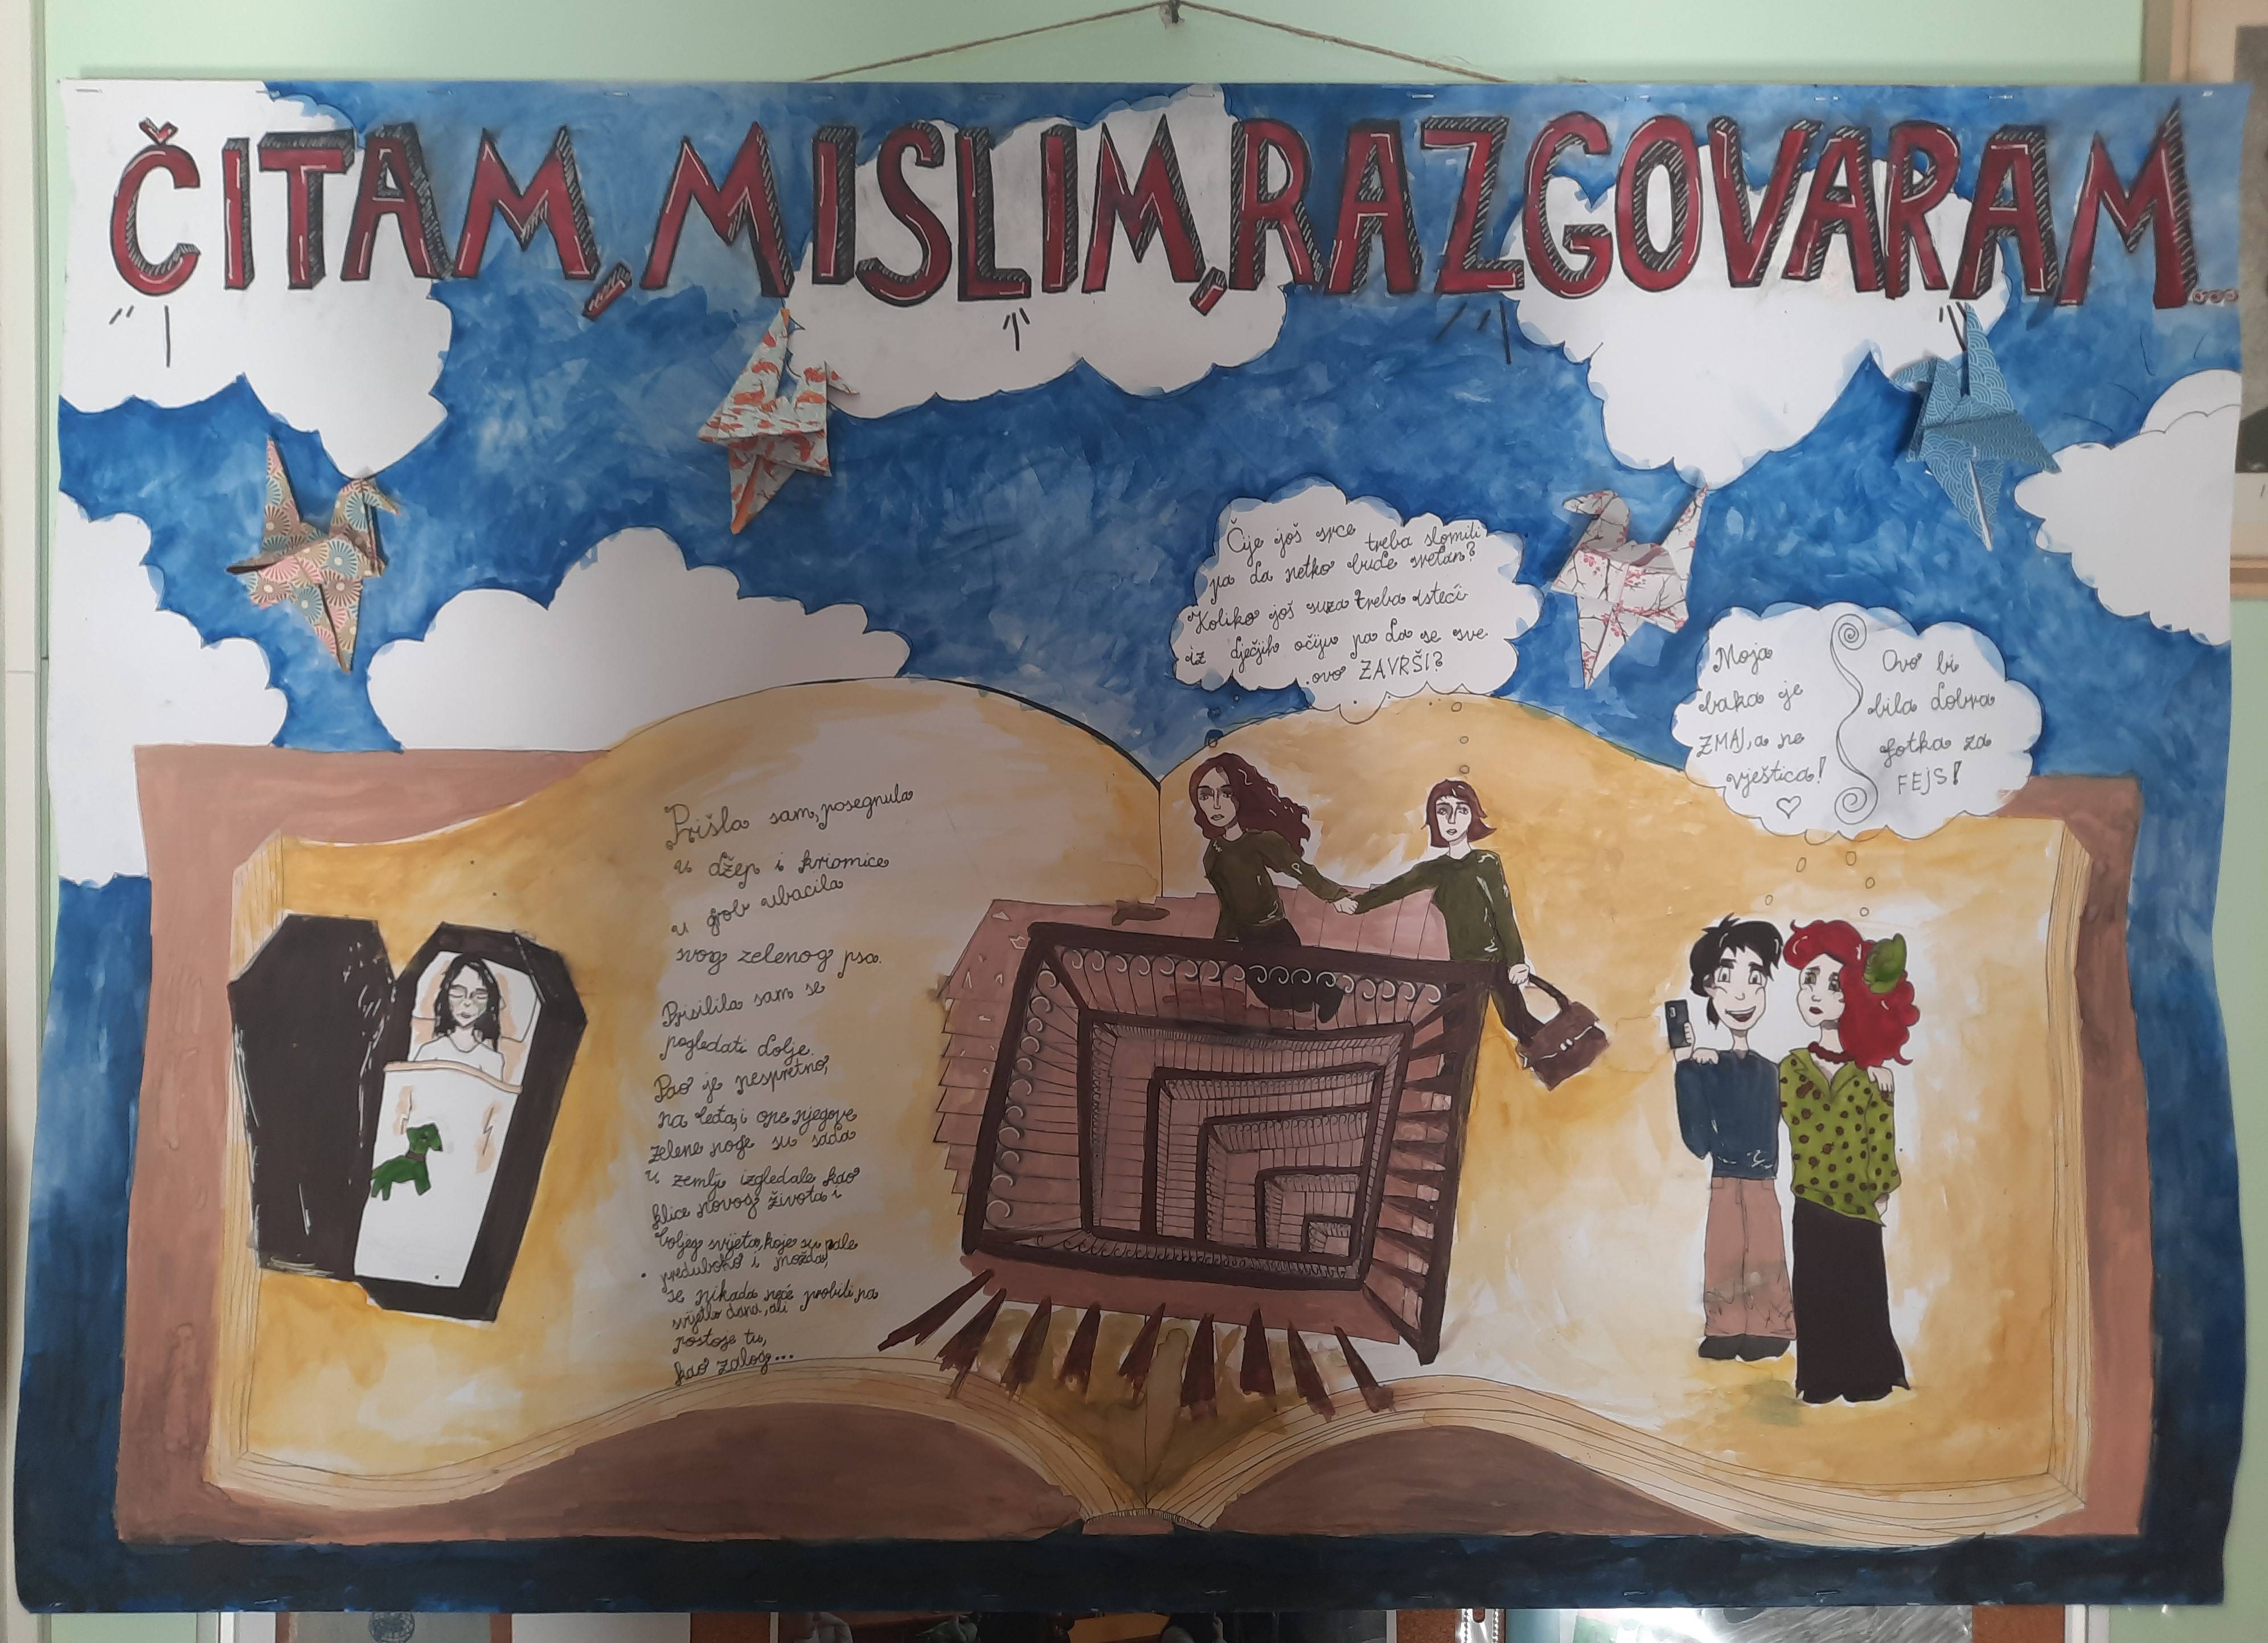 ČITAM, MISLIM, RAZGOVARAM...
Prišla sam, posegnula
u džep i kriomice
u grob ubacila
svog zelenog psa.
Prisilila sam se
pogledati dolje.
Pao je nespretno,
na leđa, i one njegove
zelene noge su sada
u zemlji izgledale kao
klice novog života i
boljeg svijeta, koje su pale
preduboko i možda,
se nikada neće probiti na
svijetlo dana, ali
postoje tu,
kao zalog...
Čije još srce treba slomiti
pa da netko bude sretan?
Koliko još suza treba isteći
iz dječjih očiju pa da se sve
ovo ZAVRŠI?
Moja
baka je
ZMAJ, a ne
vještica!
Ovo bi
bila dobra
fotka za
FEJS!